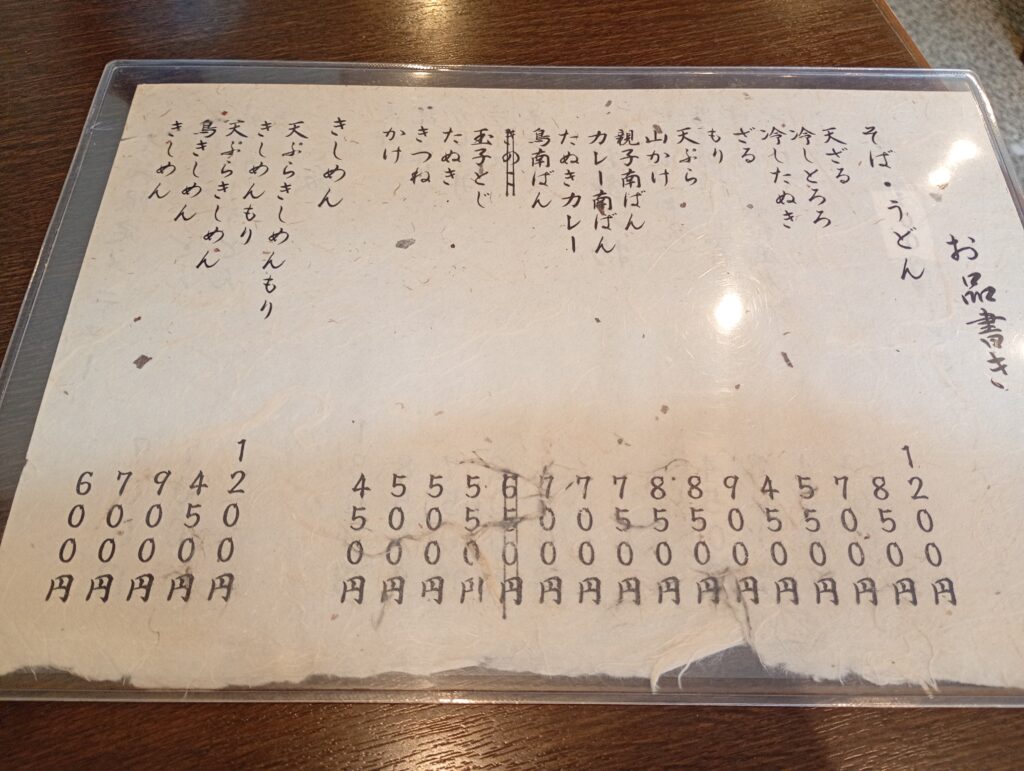 お品書き
そば・うどん
天ざる 1200円
冷しとろろ 850円
冷したぬき 700円
ざる 550円
もり 450円
天ぷら 900円
山かけ 850円
親子南ばん 850円
カレー南ばん 750円
たぬきカレー 700円
鳥南ばん 700円
650円
玉子とじ 550円
たぬき 500円
きつね 500円
かけ 450円
きしめん
天ぷらきしめんもり 1200円
きしめんもり 450円
天ぷらきしめん 900円
鳥きしめん 700円
きしめん 600円